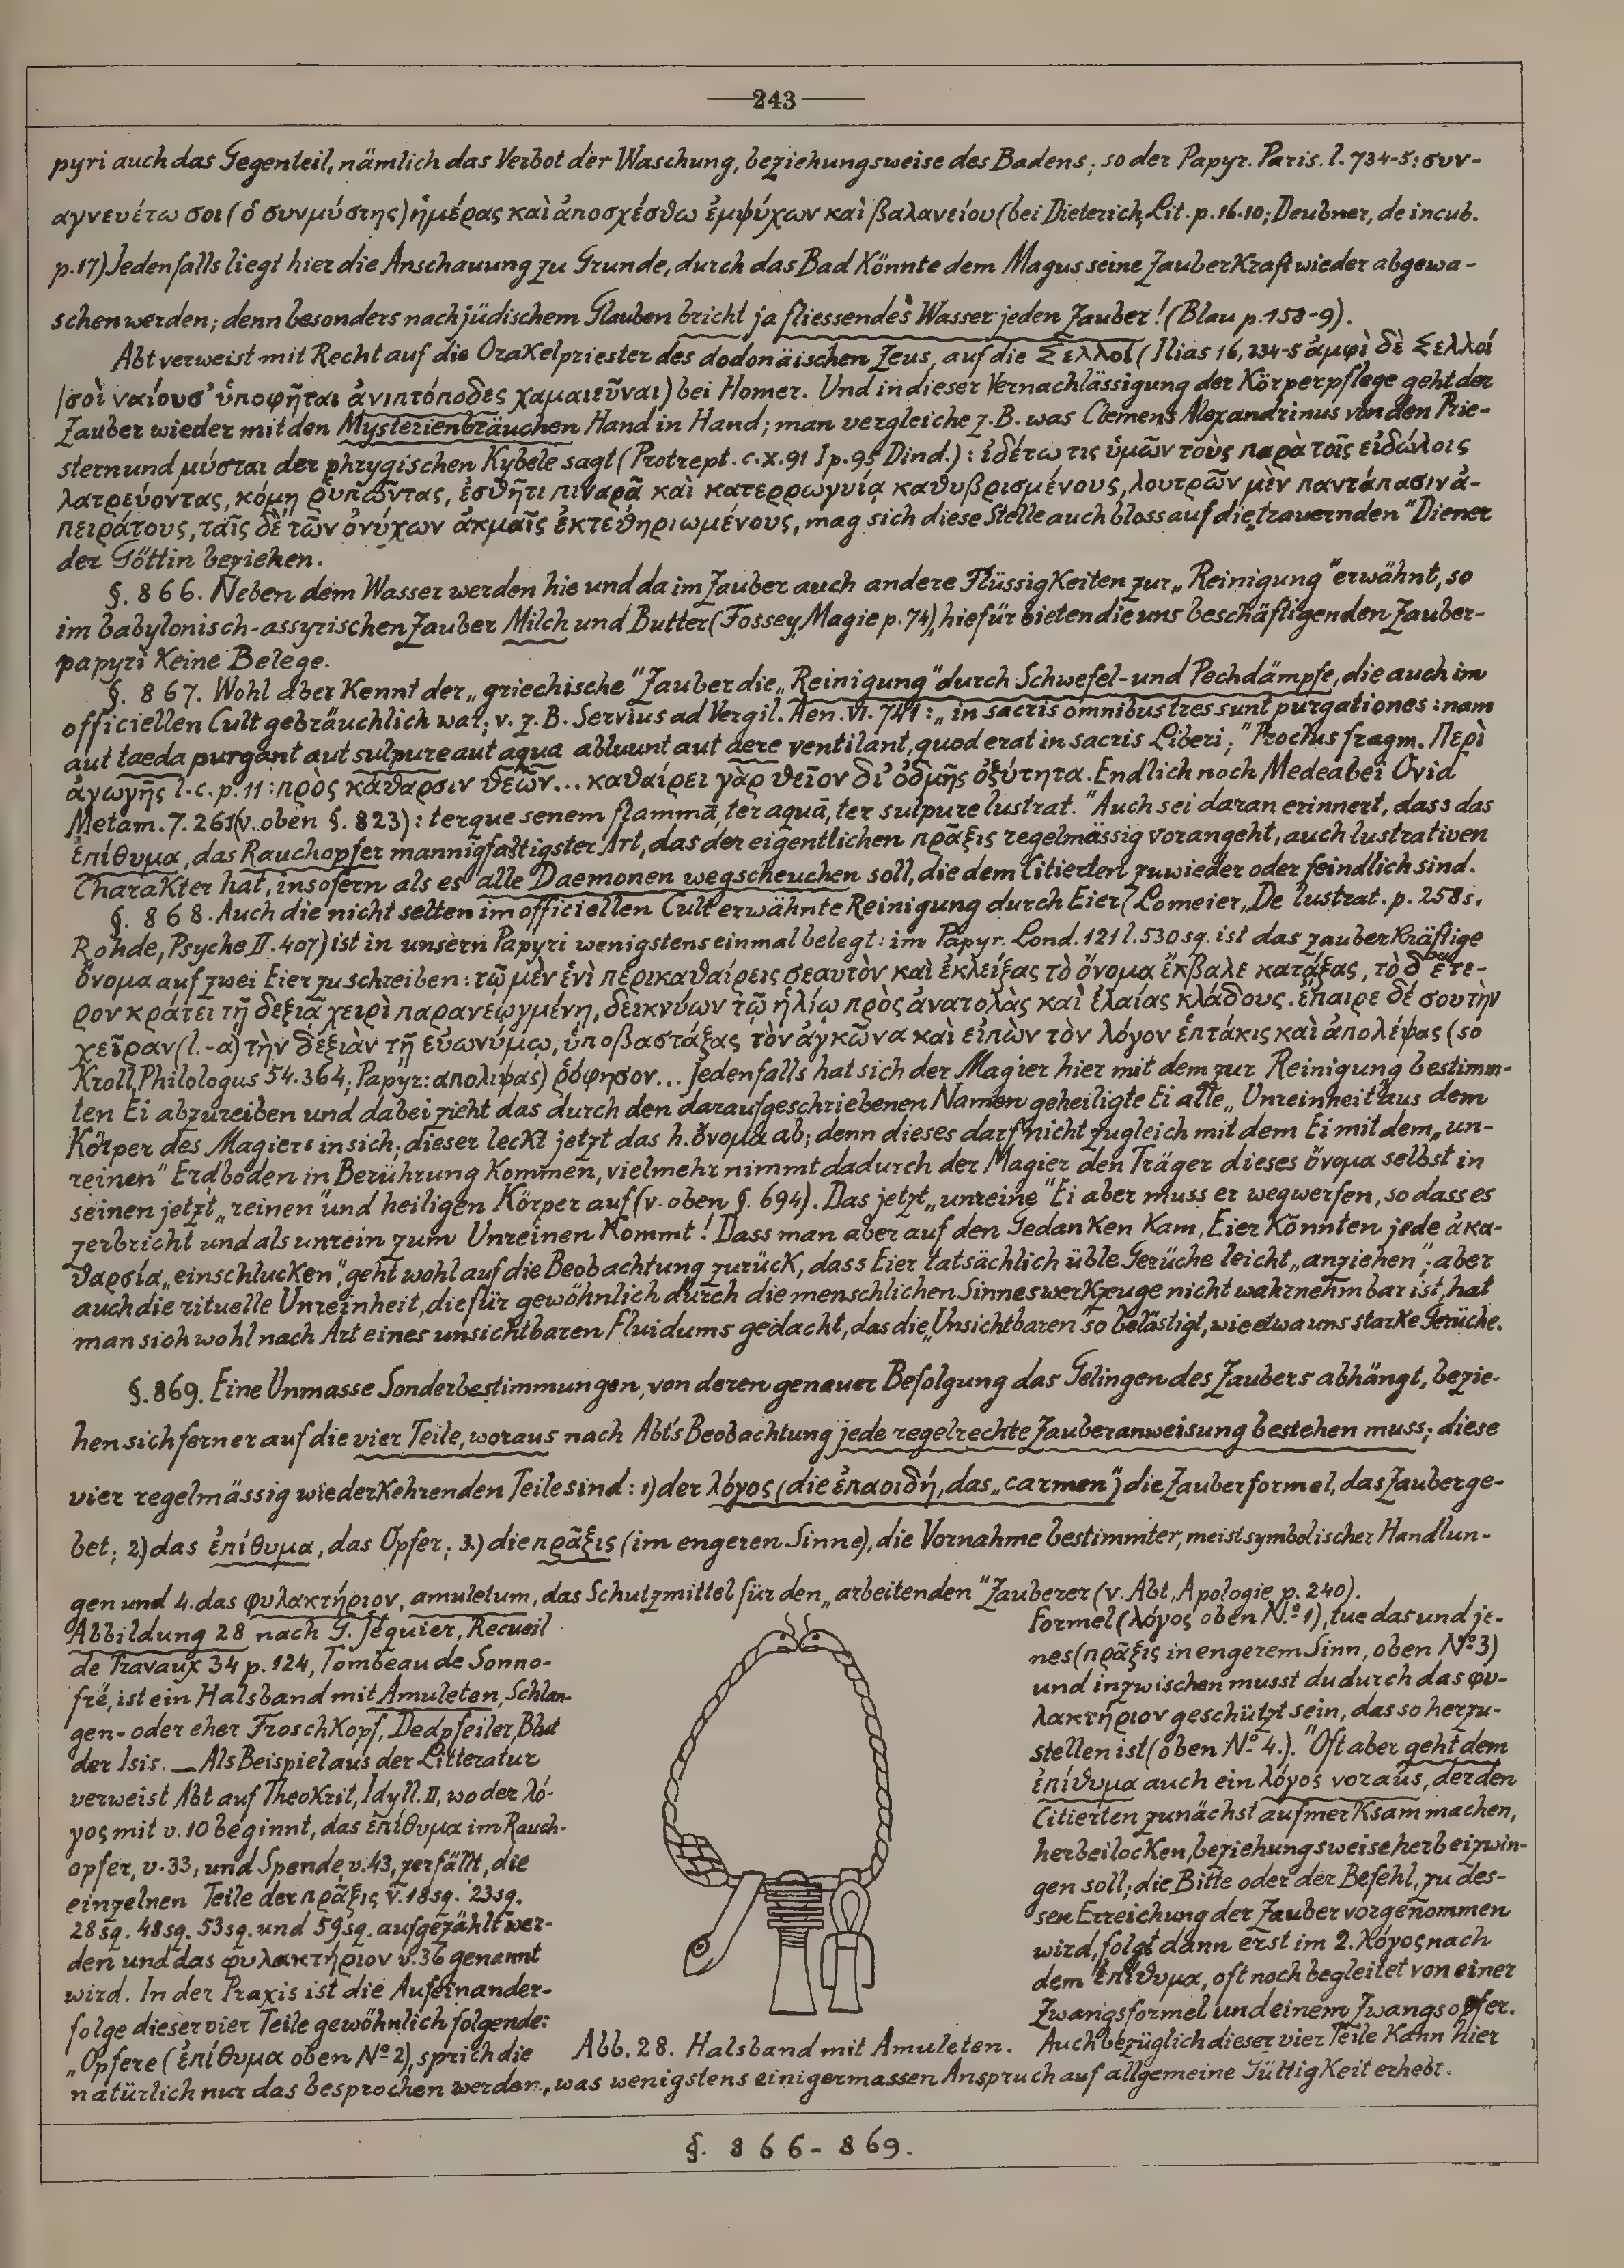 243
pyri auch das Gegenteil, nämlich das Verbot der Waschung, beziehungsweise des Badens; so der Papyr. Paris. l. 734-5: συν-
αγνευέτω σοι (ὁ συνμύστης) ἡμέρας καὶ ἀποσχέσθω ἐμψύχων καὶ βαλανείου (bei Dieterich, Lit. p. 16.10; Deubner, de incub.
p. 17) Jedenfalls liegt hier die Anschauung zu Grunde, durch das Bad könnte dem Magus seine Zauberkraft wieder abgewa-
schen werden; denn besonders nach jüdischem Glauben bricht ja fliessendes Wasser jeden Zauber! (Blau p. 158-9).
Abt verweist mit Recht auf die Orakelpriester des dodonäischen Zeus, auf die Σελλοί (Ilias 16, 234-5 ἀμφὶ δὲ Σελλοί
/σοὶ ναίουσ' ὑποφῆται ἀνιπτόποδες χαμαιεῦναι) bei Homer. Und in dieser Vernachlässigung der Körperpflege geht der
Zauber wieder mit den Mysterienbräuchen Hand in Hand; man vergleiche z. B. was Clemens Alexandrinus von den Prie-
stern und μύσται der phrygischen Kybele sagt (Protrept. c. X. 91 I p. 95 Dind.): ἰδέτω τις ὑμῶν τοὺς παρὰ τοῖς εἰδώλοις
λατρεύοντας, κόμῃ ῥυπῶντας, ἐσθῆτι πιναρᾷ καὶ κατερρωγυίᾳ καθυβρισμένους, λουτρῶν μὲν παντάπασιν ἀ-
πειράτους, ταῖς δὲ τῶν ὀνύχων ἀκμαῖς ἐκτεθηριωμένους, mag sich diese Stelle auch bloss auf die „trauernden" Diener
der Göttin beziehen.
§. 866. Neben dem Wasser werden hie und da im Zauber auch andere Flüssigkeiten zur „Reinigung" erwähnt, so
im babylonisch-assyrischen Zauber Milch und Butter (Fossey, Magie p. 74), hiefür bieten die uns beschäftigenden Zauber-
papyri keine Belege.
§. 867. Wohl aber kennt der „griechische" Zauber die „Reinigung" durch Schwefel- und Pechdämpfe, die auch im
officiellen Cult gebräuchlich war; v. z. B. Servius ad Vergil. Aen. VI. 741: „in sacris omnibus tres sunt purgationes: nam
aut taeda purgant aut sulpure aut aqua abluunt aut aere ventilant, quod erat in sacris Liberi;" Proclus fragm. Περὶ
ἀγωγῆς l. c. p. 11: πρὸς κάθαρσιν θεῶν... καθαίρει γὰρ θεῖον δι' ὀδμῆς ὀξύτητα. Endlich noch Medea bei Ovid
Metam. 7. 261 (v. oben §. 823): terque senem flammā, ter aquā, ter sulpure lustrat." Auch sei daran erinnert, dass das
ἐπίθυμα, das Rauchopfer mannigfaltigster Art, das der eigentlichen πρᾶξις regelmässig vorangeht, auch lustrativen
Charakter hat, insofern als es alle Daemonen wegscheuchen soll, die dem Citierten zuwieder oder feindlich sind.
§. 868. Auch die nicht selten im officiellen Cult erwähnte Reinigung durch Eier (Lomeier, De lustrat. p. 258 s,
Rohde, Psyche II. 407) ist in unsern Papyri wenigstens einmal belegt: im Papyr. Lond. 121 l. 530 sq. ist das zauberkräftige
ὄνομα auf zwei Eier zu schreiben: τῷ μὲν ἑνὶ περικαθαίρεις σεαυτὸν καὶ ἐκλείξας τὸ ὄνομα ἔκβαλε κατάξας, τὸ δ' ἕτε-
ρον κράτει τῇ δεξιᾷ χειρὶ παρανεῳγμένῃ, δεικνύων τῷ ἡλίῳ πρὸς ἀνατολὰς καὶ ἐλαίας κλάδους. ἔπαιρε δέ σου τὴν
χεῖραν (l. -α) τὴν δεξιὰν τῇ εὐωνύμῳ, ὑποβαστάξας τὸν ἀγκῶνα καὶ εἰπὼν τὸν λόγον ἑπτάκις καὶ ἀπολέψας (so
Kroll, Philologus 54. 364; Papyr: απολιψας) ῥόφησον... Jedenfalls hat sich der Magier hier mit dem zur Reinigung bestimm-
ten Ei abzureiben und dabei zieht das durch den daraufgeschriebenen Namen geheiligte Ei alle „Unreinheit" aus dem
Körper des Magiers in sich; dieser leckt jetzt das h. ὄνομα ab; denn dieses darf nicht zugleich mit dem Ei mit dem „un-
reinen" Erdboden in Berührung kommen, vielmehr nimmt dadurch der Magier den Träger dieses ὄνομα selbst in
seinen jetzt „reinen" und heiligen Körper auf (v. oben §. 694). Das jetzt „unreine" Ei aber muss er wegwerfen, so dass es
zerbricht und als unrein zum Unreinen kommt! Dass man aber auf den Gedanken kam, Eier könnten jede ἀκα-
θαρσία „einschlucken", geht wohl auf die Beobachtung zurück, dass Eier tatsächlich üble Gerüche leicht „anziehen"; aber
auch die rituelle Unreinheit, die für gewöhnlich durch die menschlichen Sinneswerkzeuge nicht wahrnehmbar ist, hat
man sich wohl nach Art eines unsichtbaren Fluidums gedacht, das die „Unsichtbaren" so belästigt, wie etwa uns starke Gerüche.
§. 869. Eine Unmasse Sonderbestimmungen, von deren genauer Befolgung das Gelingen des Zaubers abhängt, bezie-
hen sich ferner auf die vier Teile, woraus nach Abt's Beobachtung jede regelrechte Zauberanweisung bestehen muss; diese
vier regelmässig wiederkehrenden Teile sind: 1) der λόγος (die ἐπαοιδή, das „carmen") die Zauberformel, das Zauberge-
bet; 2) das ἐπίθυμα, das Opfer; 3.) die πρᾶξις (im engeren Sinne), die Vornahme bestimmter, meist symbolischer Handlun-
gen und 4. das φυλακτήριον, amuletum, das Schutzmittel für den „arbeitenden" Zauberer (v. Abt, Apologie p. 240).
Abbildung 28 nach G. Jequier, Recueil
de Travaux 34 p. 124, Tombeau de Sonno-
fré, ist ein Halsband mit Amuleten, Schlan-
gen- oder eher Froschkopf, Dedpfeiler, Blut
der Isis. — Als Beispiel aus der Litteratur
verweist Abt auf Theokrit, Idyll. II, wo der λό-
γος mit v. 10 beginnt, das ἐπίθυμα im Rauch-
opfer, v. 33, und Spende v. 43, zerfällt, die
einzelnen Teile der πρᾶξις v. 18 sq. 23 sq.
28 sq. 48 sq. 53 sq. und 59 sq. aufgezählt wer-
den und das φυλακτήριον v. 36 genannt
wird. In der Praxis ist die Aufeinander-
folge dieser vier Teile gewöhnlich folgende:
„Opfere (ἐπίθυμα oben Nº 2), sprich die
Abb. 28. Halsband mit Amuleten.
Formel (λόγος oben N.º 1), tue das und je-
nes (πρᾶξις in engerem Sinn, oben Nº 3)
und inzwischen musst du durch das φυ-
λακτήριον geschützt sein, das so herzu-
stellen ist (oben Nº 4.)." Oft aber geht dem
ἐπίθυμα auch ein λόγος voraus, der den
Citierten zunächst aufmerksam machen,
herbeilocken, beziehungsweise herbeizwin-
gen soll; die Bitte oder der Befehl, zu des-
sen Erreichung der Zauber vorgenommen
wird, folgt dann erst im 2. λόγος nach
dem ἐπίθυμα, oft noch begleitet von einer
Zwangsformel und einem Zwangsopfer.
Auch bezüglich dieser vier Teile kann hier
natürlich nur das besprochen werden, was wenigstens einigermassen Anspruch auf allgemeine Gültigkeit erhebt.
§. 866-869.